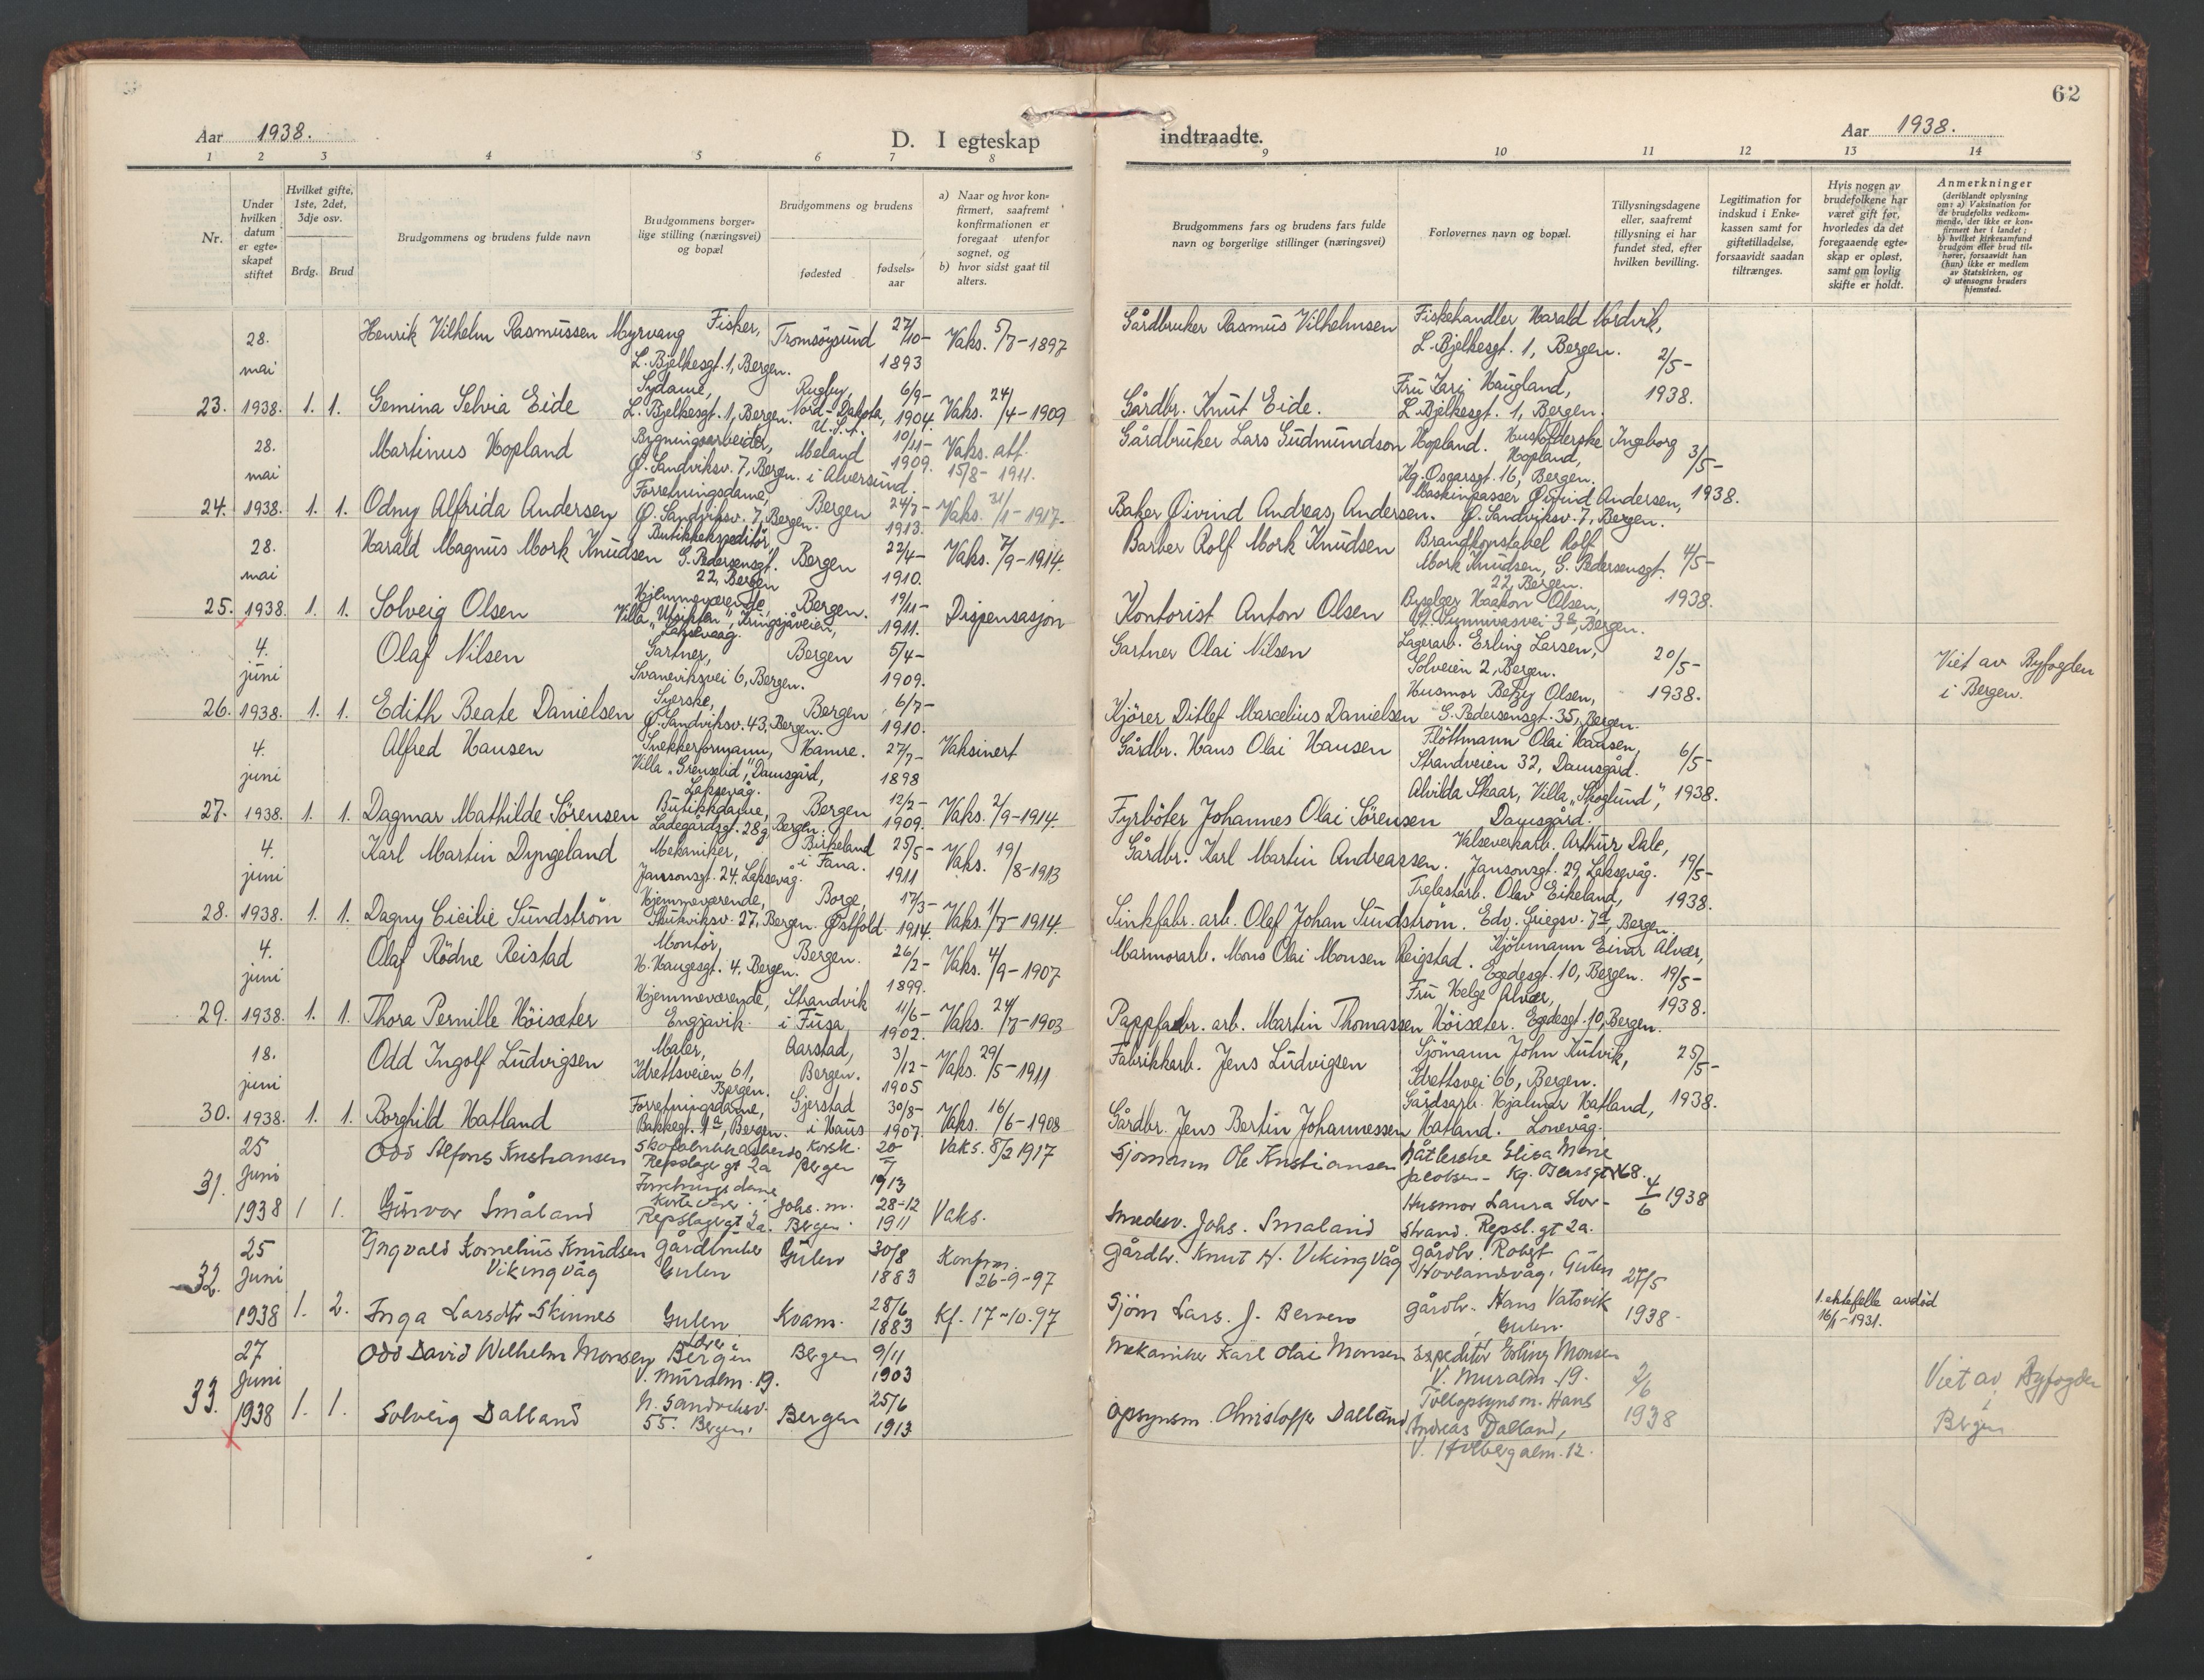 62
Aar 1938.
D. I egteskap
indtraadte.
Aar 1938.
1 2 3 4 5 6 7 8 9 10 11 12 13 14
Nr.
Under
hvilken
datum
er egte-
skapet
stiftet
Hvilket gifte,
1ste, 2det,
3dje osv.
Brdg. Brud
Brudgommens og brudens fulde navn
Brudgommens borger-
lige stilling (næringsvei)
og bopæl
Brudgommens og brudens
fødested
fødsels-
aar
a) Naar og hvor kon-
firmert, saafremt
konfirmationen er
foregaat utenfor
sognet, og
b) hvor sidst gaat til
alters.
Brudgommens fars og brudens fars fulde
navn og borgerlige stillinger (næringsvei)
Forlovernes navn og bopæl.
Tillysningsdagene
eller, saafremt
tillysning ei har
fundet sted, efter
hvilken bevilling.
Legitimation for
indskud i Enke-
kassen samt for
giftetilladelse,
forsaavidt saadan
tiltrænges.
Hvis nogen av
brudefolkene har
været gift før,
hvorledes da det
foregaaende egte-
skap er opløst,
samt om lovlig
skifte er holdt.
Anmerkninger
(deriblandt oplysning
om: a) Vaksination for
de brudefolks vedkom-
mende, der ikke er kon-
firmert her i landet;
b) hvilket kirkesamfund
brudgom eller brud til-
hører, forsaavidt han
(hun) ikke er medlem
av Statskirken, og
c) utensogns bruders
hjemsted.
23. 28. mai 1938. 1. 1.
Henrik Vilhelm Rasmussen Myrvang
Fisker,
L. Bjelkesgt. 1, Bergen.
Tromsöysund
27/10-
1893
Vaks. 5/7-1897
Gårdbruker Rasmus Vilhelmsen
Fiskehandler Harald Nordvik,
L. Bjelkesgt. 1, Bergen.
2/5-
1938.
Gemina Selvia Eide
Sydame,
L. Bjelkesgt. 1, Bergen.
Rugby,
Nord-Dakota,
U.S.A.
6/9-
1904.
Vaks. 24/4-1909
Gårdbr. Knut Eide.
Fru Zarj Haugland,
L. Bjelkesgt. 1, Bergen.
24. 28. mai 1938. 1. 1.
Martinus Hopland
Bygningsarbeider,
Ø. Sandviksv. 7, Bergen.
Meland
i Alversund.
10/11-
1909.
Vaks. att.
15/8-1911.
Gårdbruker Lars Gudmundson Hopland.
Husholderske Ingeborg
Hopland,
Kg. Oscarsgt. 16, Bergen.
3/5-
1938.
Odny Alfrida Andersen
Forretningsdame,
Ø. Sandviksv. 7, Bergen.
Bergen
24/7-
1913.
Vaks. 31/1-1917.
Baker Öivind Andreas Andersen.
Maskinpasser Öivind Andersen,
Ø. Sandviksv. 7, Bergen.
25. 28. mai 1938. 1. 1.
Harald Magnus Mork Knudsen
Butikkekspeditör,
G. Pedersensgt.
22, Bergen
Bergen
22/4-
1910.
Vaks. 7/9-1914.
Barber Rolf Mork Knudsen
Brandkonstabel Rolf
Mork Knudsen, G. Pedersensgt.
22, Bergen.
4/5-
1938.
Solveig Olsen
Hjemmeværende,
Villa "Utsikten", Kringsjåveien,
Laksevaag.
Bergen.
19/11-
1911.
Dispensasjon
Kontorist Anton Olsen
Byselger Haakon Olsen,
St. Sunnivasvei 3a, Bergen.
26. 4. juni 1938. 1. 1.
Olaf Nilsen
Gartner,
Svaneviksvei 6, Bergen.
Bergen
5/4-
1909.
Gartner Olai Nilsen
Lagerarb. Erling Larsen,
Solveien 2, Bergen.
20/5-
1938.
Viet av Byfogden
i Bergen.
Edith Beate Danielsen
Syerske,
Ø. Sandviksv. 43, Bergen.
Bergen
6/7-
1910.
Kjörer Ditlef Marcelius Danielsen
Husmor Betzy Olsen,
G. Pedersensgt. 35, Bergen.
27. 4. juni 1938. 1. 1.
Alfred Hansen
Snekkerformann,
Villa "Grenselid", Damsgård,
Laksevåg.
Hamre.
27/7-
1898
Vaksinert
Gårdbr. Hans Olai Hansen
Flöttmann Olai Hansen,
Strandveien 32, Damsgård.
6/5-
1938.
Dagmar Mathilde Sörensen
Butikkdame,
Ladegårdsgt. 28g Bergen.
Bergen
12/2-
1909.
Vaks. 2/9-1914.
Fyrböter Johannes Olai Sörensen
Alvilda Skaar, Villa "Skoglund",
Damsgård.
28. 4. juni 1938. 1. 1.
Karl Martin Dyngeland
Mekaniker,
Janssonsgt. 24, Laksevåg.
Birkeland
i Fana.
25/5-
1911
Vaks. 19/8-1913
Gårdbr. Karl Martin Andreassen.
Valseverkarb. Arthur Dale,
Jansonsgt. 29, Laksevåg.
19/5-
1938.
Dagny Cicilie Sundström
Hjemmeværende,
Skutviksv. 27, Bergen.
Borge,
Østfold
17/3-
1914.
Vaks. 1/7-1914.
Sinkfabr. arb. Olaf Johan Sundström.
Trelastarb. Olav Eikeland,
Edv. Griegsv. 7a, Bergen.
29. 4. juni 1938. 1. 1.
Olaf Rödne Reistad
Montör,
H. Haugesgt. 4, Bergen.
Bergen.
26/2-
1899.
Vaks. 4/9-1907
Marmorarb. Mons Olai Monsen Reigstad.
Kjöbmann Einar Alvær,
Egedesgt. 10, Bergen.
19/5-
1938.
Thora Pernille Höisæter
Hjemmeværende,
Engjavik.
Strandvik
i Fusa
11/6-
1902.
Vaks. 24/7-1903
Pappfabr. arb. Martin Thomassen Höisæter.
Fru Helge Alvær,
Egedesgt. 10, Bergen.
30. 18. juni 1938. 1. 1.
Odd Ingolf Ludvigsen
Maler,
Idrettsveien 61,
Bergen.
Aarstad,
Bergen.
3/12-
1905
Vaks. 29/5-1911
Fabrikkarb. Jens Ludvigsen
Sjömann John Kulvik,
Idrettsvei 66, Bergen.
25/5-
1938.
Borghild Hatland
Forretningsdame,
Bakkegt. 1a, Bergen.
Gjerstad
i Haus
30/8-
1907.
Vaks. 16/6-1908
Gårdbr. Jens Bertin Johannessen Hatland.
Gårdsarb. Hjalmar Hatland,
Lonevåg.
31. 25 Juni 1938 1 1.
Odd Alfons Kristiansen
Repslager gt 2a
Korsk.
Bergen
20/7
1913
Vaks. 8/2 1917
Sjömann Ole Kristiansen
Nåtlerske Elisa Marie
Jacobsen - Kg. Oscarsgt 68.
4/6 1938
Gunvor Småland
Forretningsdame
Repslagergt 2a.
Johs. m.
Bergen.
28-12
1911
Vaks.
Smedsv. Johs. Småland
Husmor Laura Stor-
strand. Repsl. gt 2a.
32. 25 Juni 1938 1. 2.
Yngvald Kornelius Knudsen
Vikingvåg
Gårdbruker
Gulen
Gulen
30/8
1883
Konfirm.
26-9-97
Gårdbr. Knut H. Vikingvåg
Gårdbr. Robert
Hovlandsvåg, Gulen
27/5
1938-
Inga Larsdtr Skinnes
Gulen
Kvam.
28/6
1883
Kf. 17-10.97
Sjöm Lars. J.
gårdbr. Hans Vatsvik
Gulen.
1. ektefelle avdöd
16/1-1931.
33. 27 Juni 1938 1. 1.
Odd David Wilhelm Monsen
Bergen
V. Muralm. 19.
Bergen
9/11
1903
Mekaniker Karl Olai Monsen
Expeditör Erling Monsen
V. Muralm. 19.
2/6
1938
Viet av Byfogden
i
Bergen
Solveig Dalland
N. Sandviksv.
55. Bergen.
Bergen
25/6
1913
Opsynsm. Christoffer Dalland
Tollopsynsm. Hans
Andreas Dalland,
V. Holbergalm. 12.